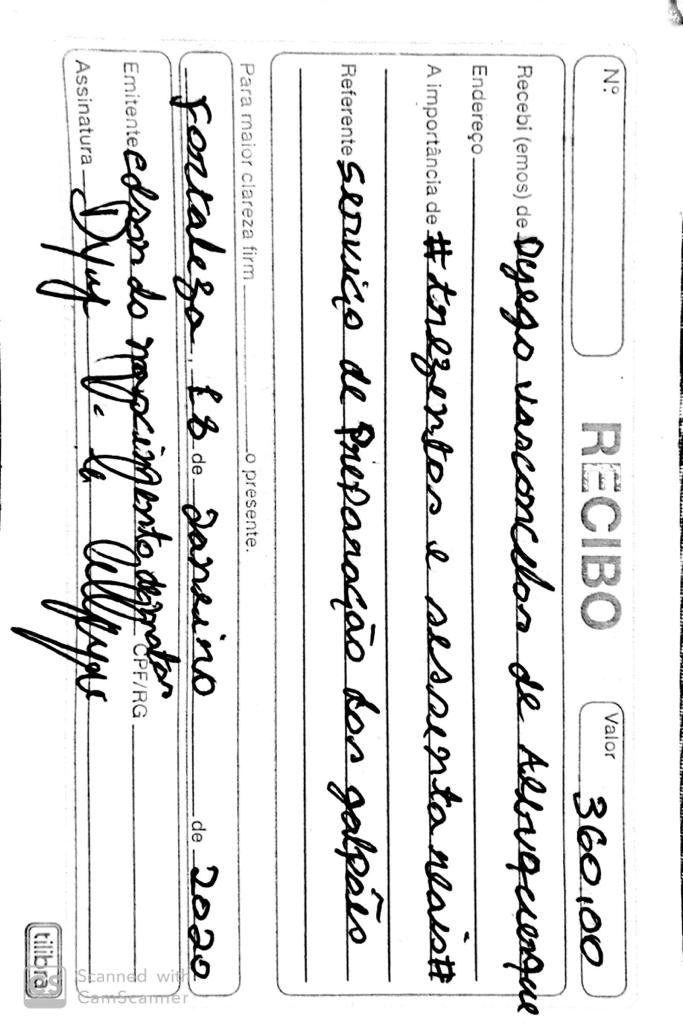 Nº
RECIBO
Valor 360,00
Recebi (emos) de Dyego Vasconcelos de Albuquerque
Endereço
A importância de # trezentos e sessenta reais #
Referente serviço de Preparação dos galpões
Para maior clareza firm o presente.
Fortaleza, 18 de Janeiro de 2020
Emitente Edson do nascimento CPF/RG
Assinatura
tilibra
CS Scanned with
CamScanner